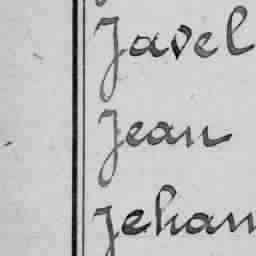 Javel
Jean
Jehan